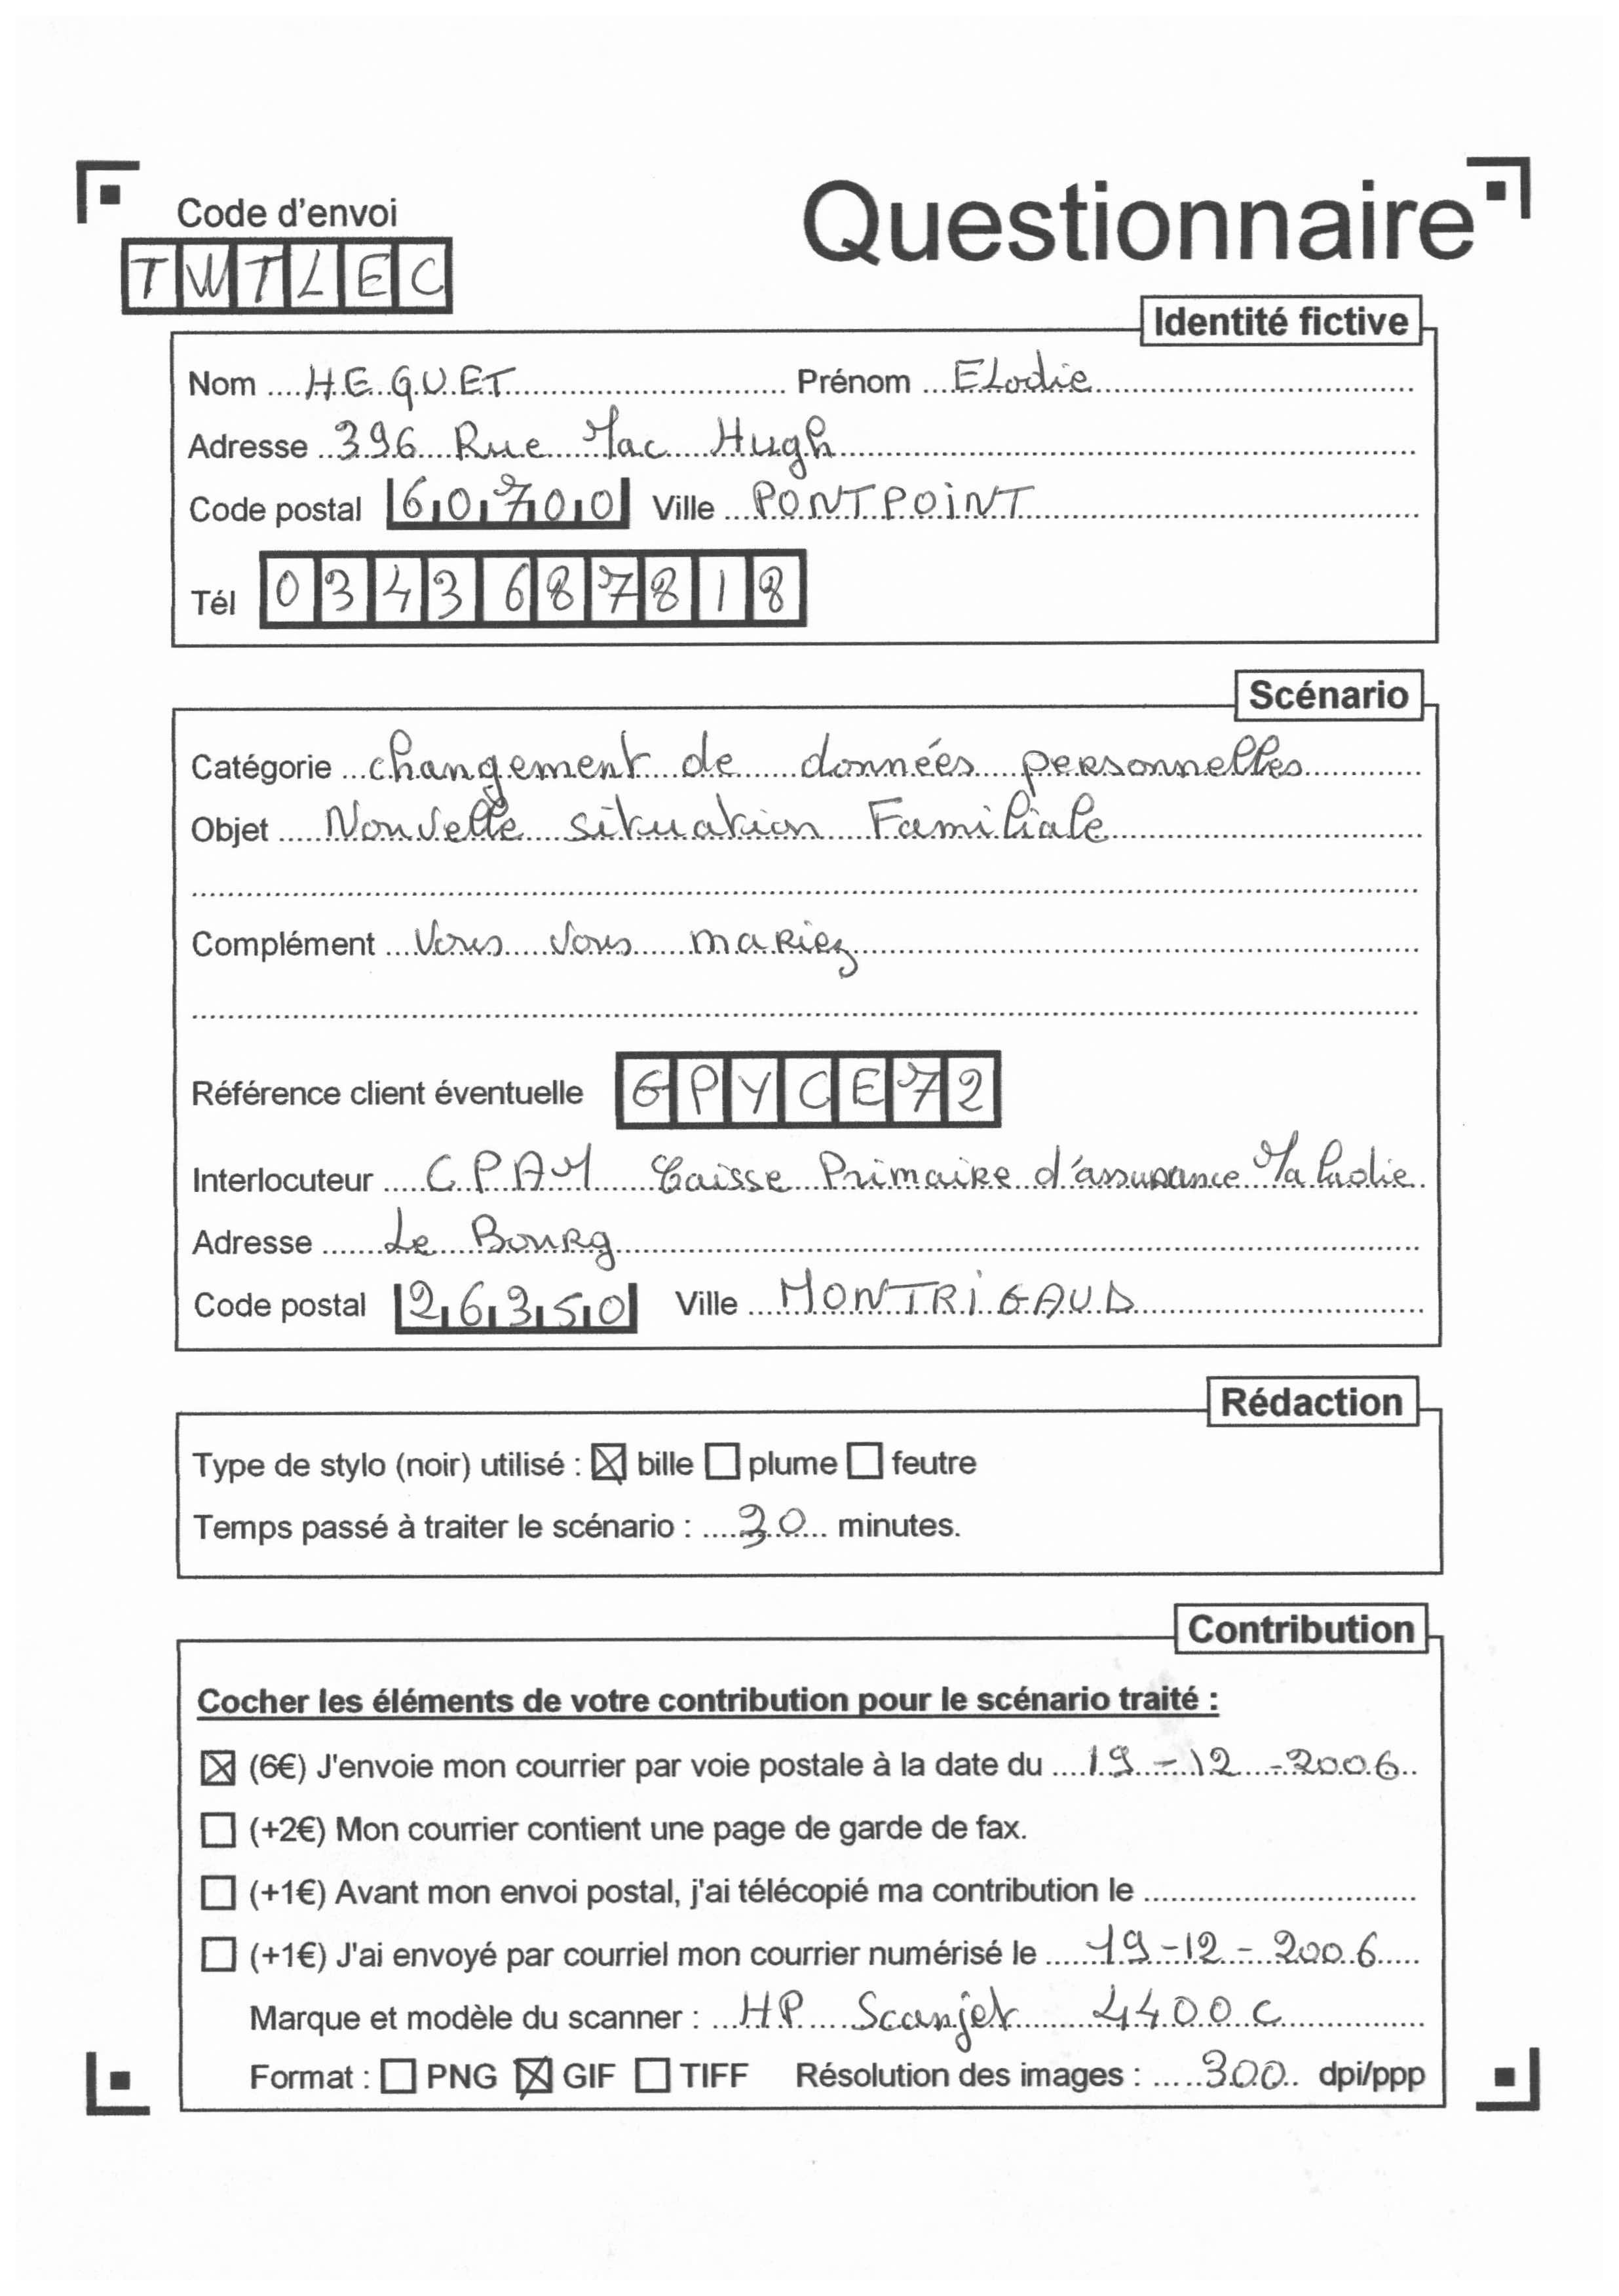 Code d'envoi
Questionnaire
TWTLEC
Identité fictive
Nom HEQUET Prénom Elodie
Adresse 396 Rue Mac Hugh
Code postal 60700 Ville PONTPOINT
Tél 0343687818
Scénario
Catégorie changement de données personnelles
Objet Nouvelle situation Familiale
Complément Vous vous mariez
Référence client éventuelle GPYCE72
Interlocuteur CPAM Caisse Primaire d'assurance Maladie
Adresse Le Bourg
Code postal 26350 Ville MONTRIGAUD
Rédaction
Type de stylo (noir) utilisé : ☒ bille ☐ plume ☐ feutre
Temps passé à traiter le scénario : 30 minutes.
Contribution
Cocher les éléments de votre contribution pour le scénario traité :
☒ (6€) J'envoie mon courrier par voie postale à la date du 19-12-2006
☐ (+2€) Mon courrier contient une page de garde de fax.
☐ (+1€) Avant mon envoi postal, j'ai télécopié ma contribution le
☐ (+1€) J'ai envoyé par courriel mon courrier numérisé le 19-12-2006
Marque et modèle du scanner : HP Scanjet 4400c
Format : ☐ PNG ☒ GIF ☐ TIFF Résolution des images : 300 dpi/ppp